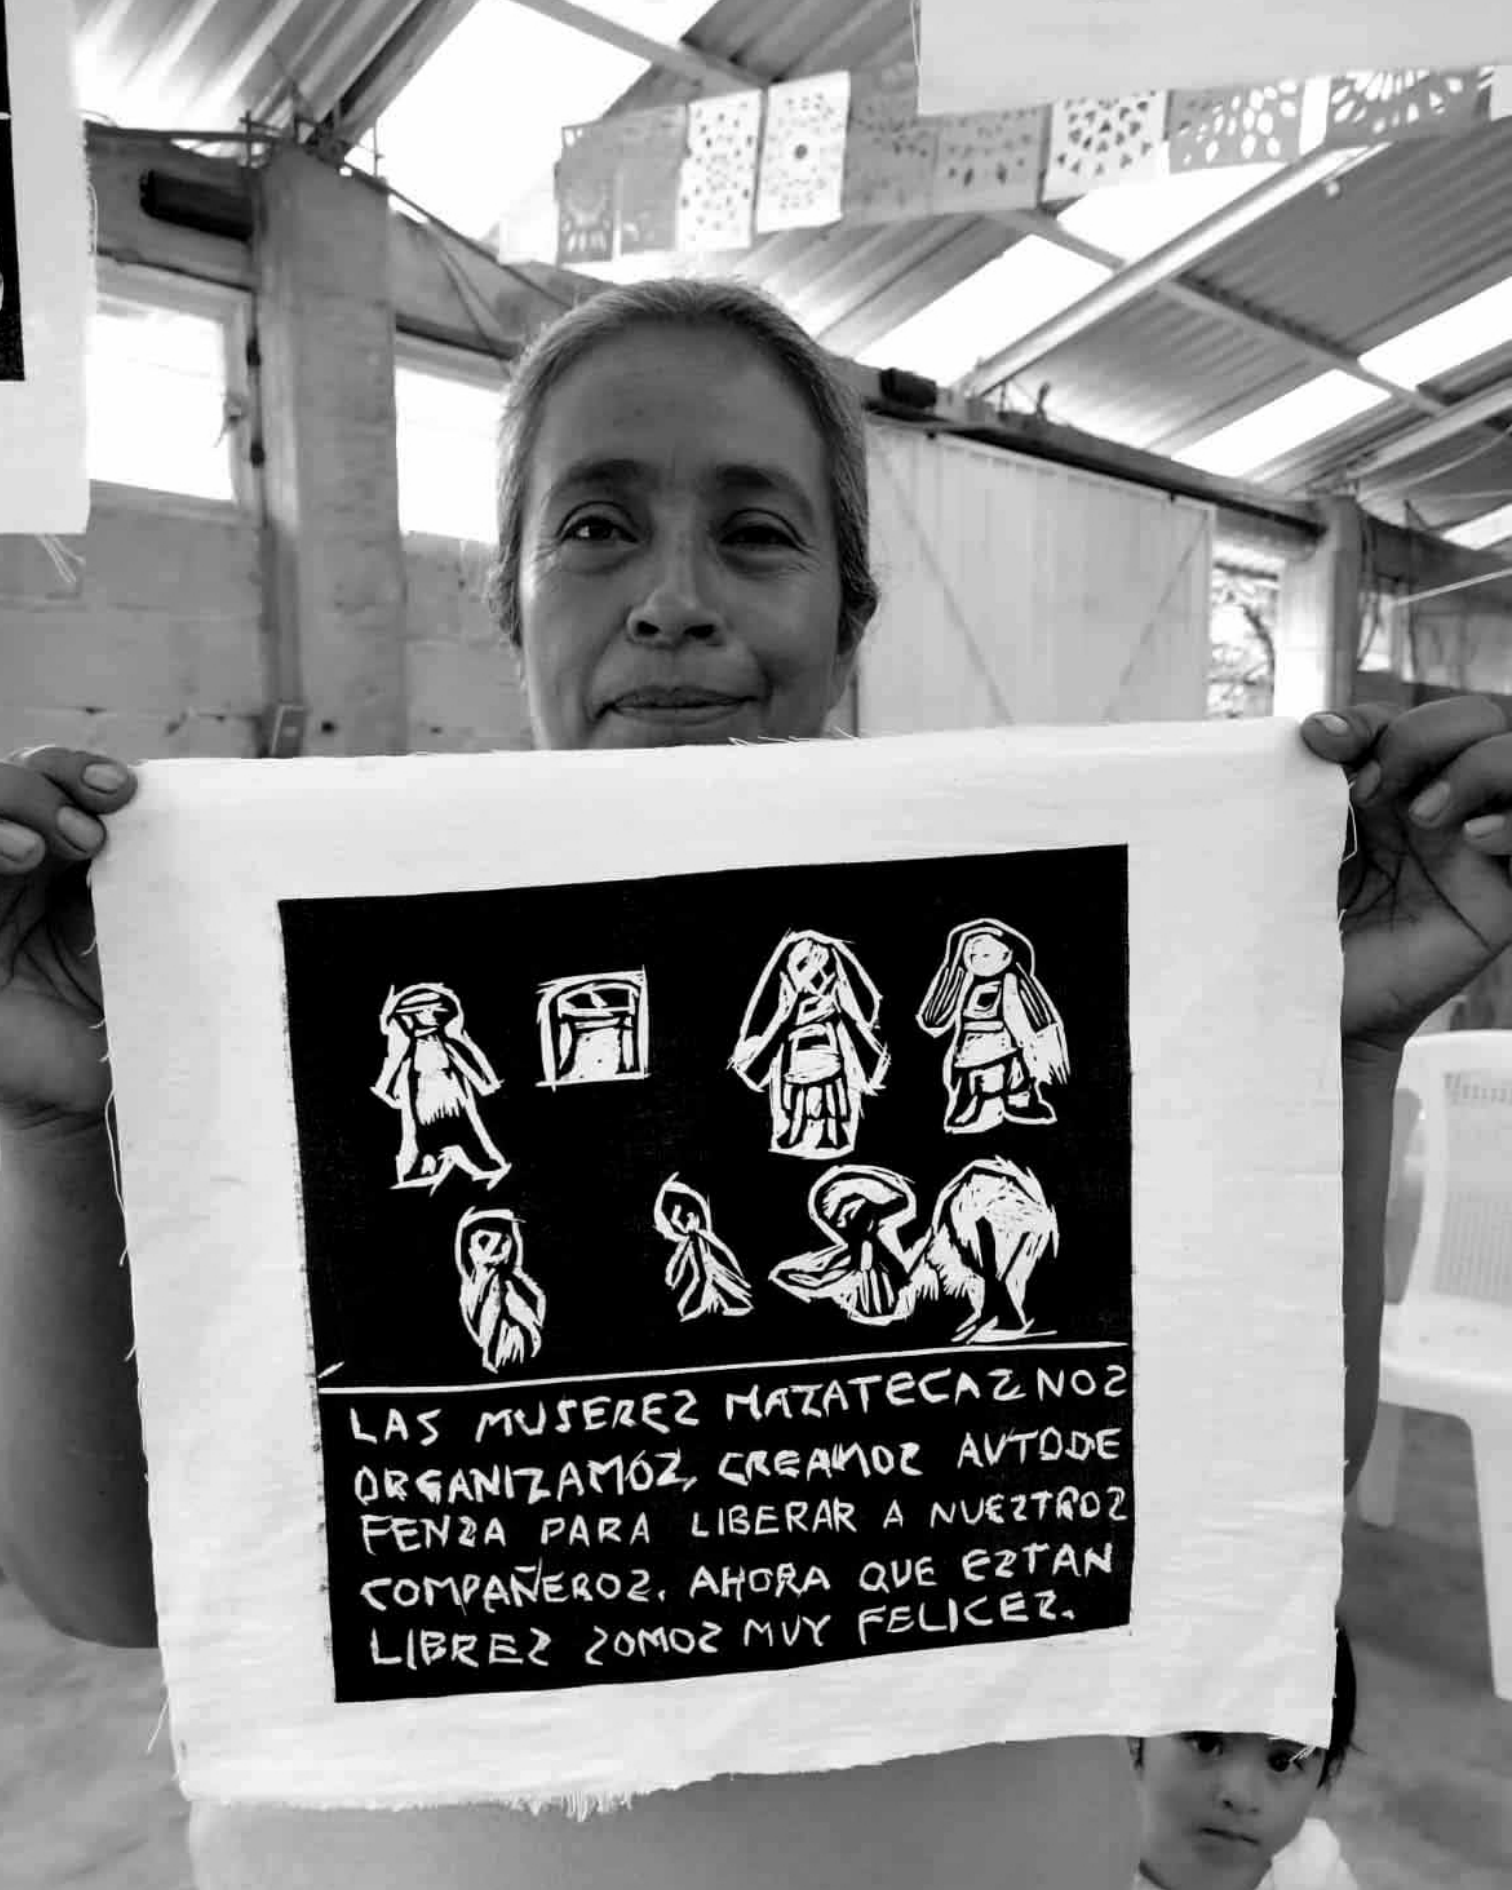 LAS MUSEREZ MAZATECAZ NOZ
ORGANIZAMÓZ, CREAMOZ AUTODE
FENZA PARA LIBERAR A NUEZTROZ
COMPAÑEROZ. AHORA QUE EZTAN
LIBREZ ZOMOZ MUY FELICEZ.